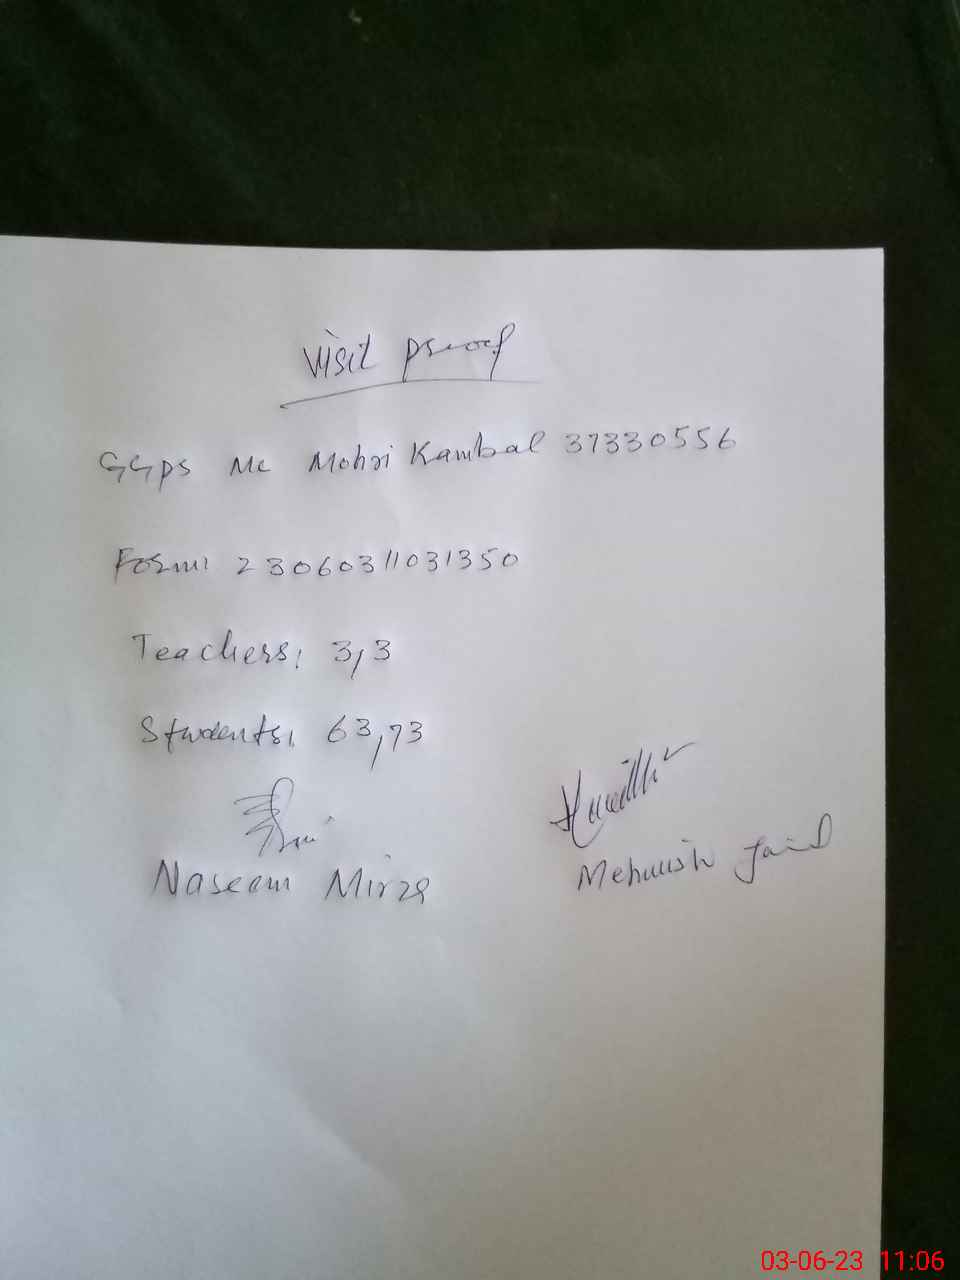 Visit proof
GGPS MC Mohri Kambal 37330556
Form: 23060311031350
Teachers: 3,3
Students: 63,73
Naseem Mirza
Mehwish
03-06-23 11:06